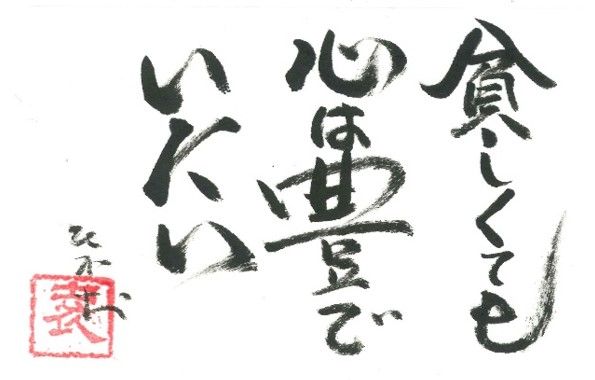 貧しくても
心は豊で
いたい